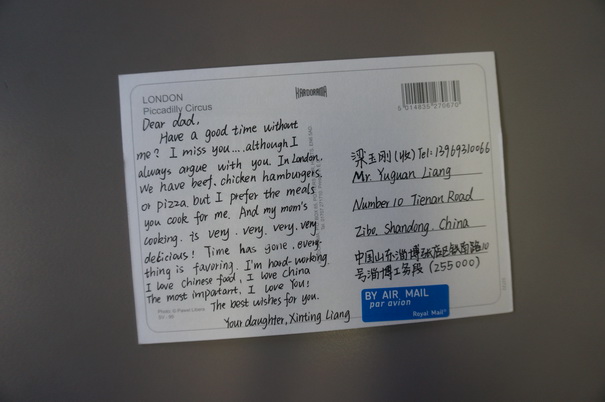 LONDON
Piccadilly Circus
Dear dad,
Have a good time without
me? I miss you....although I
always argue with you. In London,
We have beef, chicken hamburgers,
or pizza, but I prefer the meals
you cook for me. And my mom's
cooking. is very. very. very. very
delicious! Time has gone, every-
thing is favoring. I'm hard-working.
I love Chinese food, I love China
The most impatant. I love You!
The best wishes for you.
Your daughter, Xinting Liang
KARDORAMA
5 014835 270670
梁玉刚(收) Tel: 13969310066
Mr. Yuguan Liang
Number 10 Tienan Road
Zibo, Shandong, China
中国山东淄博张店区铁南路10
号淄博工务段 (255000)
BY AIR MAIL
par avion
Royal Mail